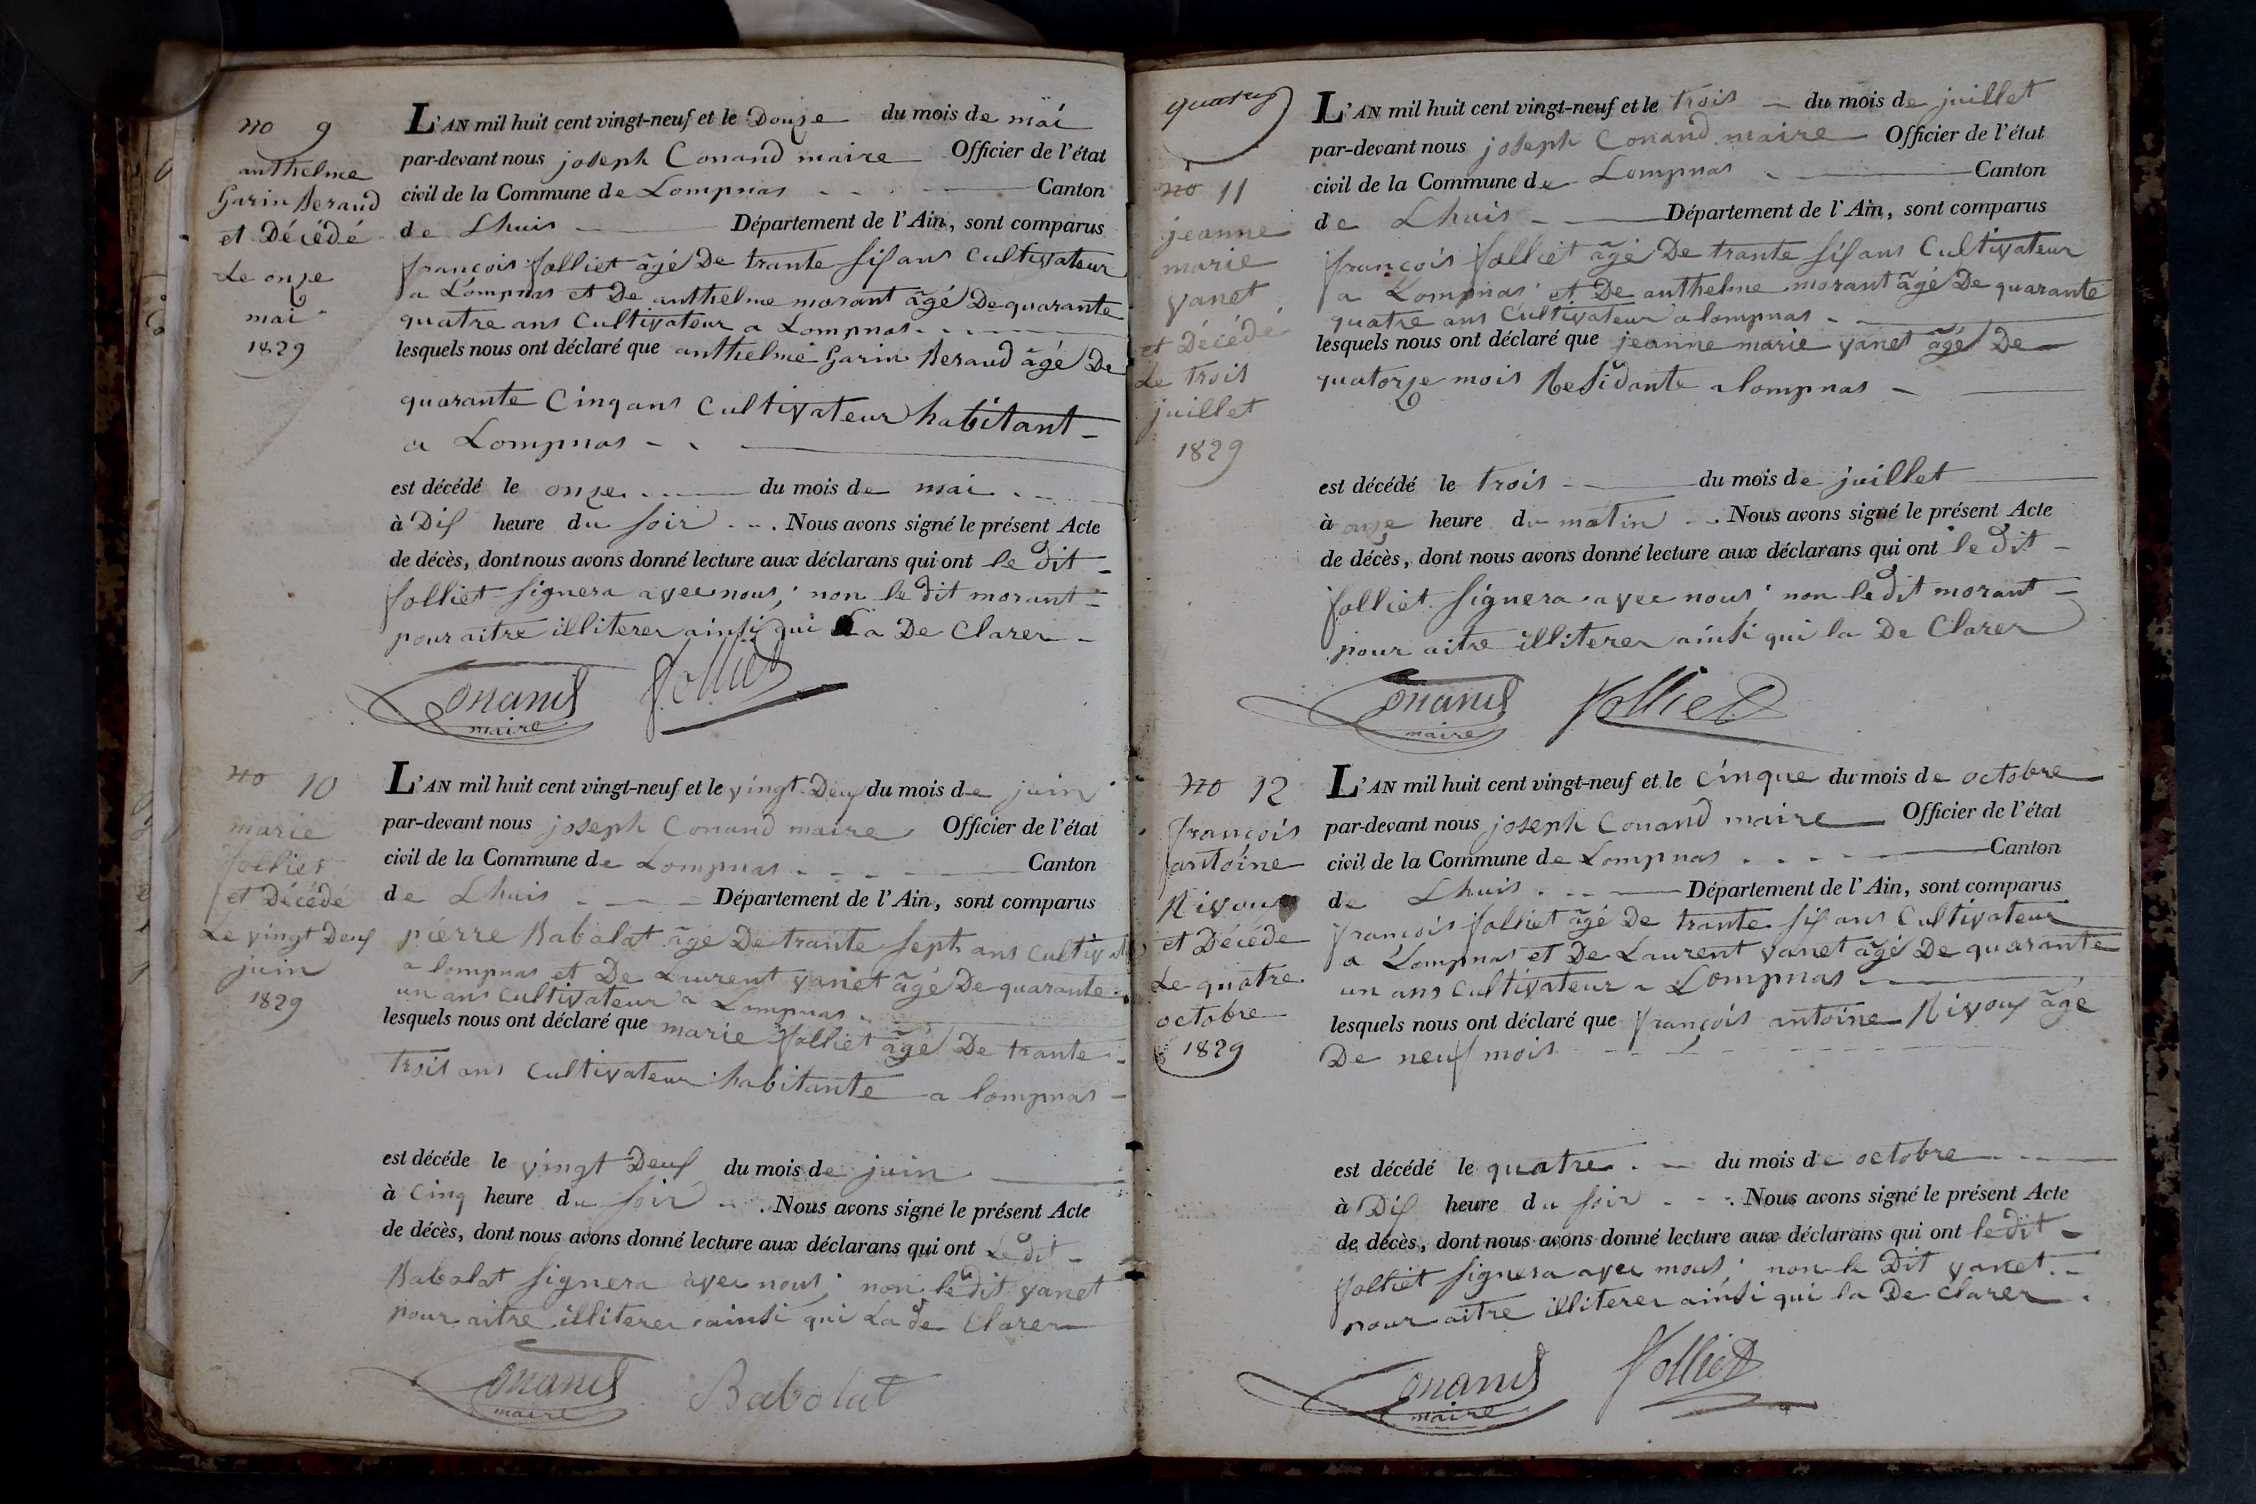 no 9
anthelme
Garin Beraud
et Décédé
Le onze
mai
1829
L'AN mil huit cent vingt-neuf et le Douze du mois de mai
par-devant nous joseph Conand maire Officier de l'état
civil de la Commune de Lompnas Canton
de Lhuis Département de l'Ain, sont comparus
françois folliet âgé De trante sis ans Cultivateur
a Lompnas et De anthelme morant âgé De quarante
quatre ans Cultivateur a Lompnas
lesquels nous ont déclaré que anthelme Garin Beraud âgé De
quarante Cinq ans Cultivateur habitant
a Lompnas
est décédé le onze du mois de mai
à Dis heure du soir Nous avons signé le présent Acte
de décès, dont nous avons donné lecture aux déclarans qui ont le dit
folliet signera avec nous; non le dit morant
pour aitre illiterer ainsi qui La De Clarer
Conand
maire
folliet
no 10
marie
folliet
et Décédé
Le vingt Deus
juin
1829
L'AN mil huit cent vingt-neuf et le vingt Deus du mois de juin
par-devant nous joseph Conand maire Officier de l'état
civil de la Commune de Lompnas Canton
de Lhuis Département de l'Ain, sont comparus
pierre Babolat âgé De trante sept ans Cultivat
a lompnas et De Laurent vanet âgé De quarante
un ans Cultivateur a Lompnas
lesquels nous ont déclaré que marie folliet âgé De trante
trois ans Cultivateur habitante a lompnas
est décéde le vingt Deus du mois de juin
à Cinq heure du soir Nous avons signé le présent Acte
de décès, dont nous avons donné lecture aux déclarans qui ont Le dit
Babolat signera avec nous; non le dit vanet
pour aitre illiterer ainsi qui La de Clarer
Conand
maire
Babolat
quatre
no 11
jeanne
marie
vanet
et Décédé
Le trois
juillet
1829
L'AN mil huit cent vingt-neuf et le trois du mois de juillet
par-devant nous joseph Conand maire Officier de l'état
civil de la Commune de Lompnas Canton
de Lhuis Département de l'Ain, sont comparus
françois folliet âgé De trante sis ans Cultivateur
a Lompnas et De anthelme morant âgé De quarante
quatre ans Cultivateur a lompnas
lesquels nous ont déclaré que jeanne marie vanet âgé De
quatorze mois Residante a lompnas
est décédé le trois du mois de juillet
à onze heure du matin Nous avons signé le présent Acte
de décès, dont nous avons donné lecture aux déclarans qui ont le dit
folliet signera avec nous; non le dit morant
pour aitre illiterer ainsi qui la De Clarer
Conand
maire
folliet
no 12
françois
antoine
Rivoux
et Décéde
Le quatre
octobre
1829
L'AN mil huit cent vingt-neuf et le cinque du mois de octobre
par-devant nous joseph Conand maire Officier de l'état
civil de la Commune de Lompnas Canton
de Lhuis Département de l'Ain, sont comparus
françois folliet âgé De trante sis ans Cultivateur
a Lompnas et De Laurent vanet âgé De quarante
un ans Cultivateur a Lompnas
lesquels nous ont déclaré que françois antoine Rivoux âgé
De neuf mois
est décédé le quatre du mois de octobre
à Dis heure du soir Nous avons signé le présent Acte
de décès, dont nous avons donné lecture aux déclarans qui ont le dit
folliet signera avec nous; non le Dit vanet
pour aitre illiterer ainsi qui la De Clarer
Conand
maire
folliet